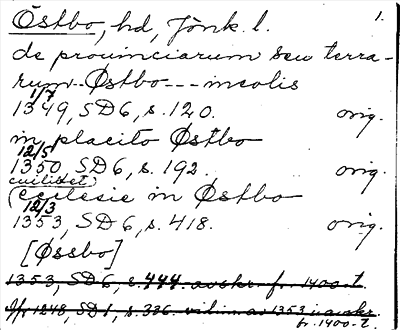 Östbo, hd, Jönk. l. 1.
de prouinciarum seu terra-
rum - Østbo --- incolis
1/7
1349, SD 6, s. 120. orig.
in placito Østbo
12/5
1350, SD 6, s. 192. orig.
cuilibet)
(ecclesie in Østbo
12/3
1353, SD 6, s. 418. orig.
[Øssbo]
1353, SD 6, s. 444 avskr. fr. 1400-t.
1248, SD 1, s. 336. vidim. av 1353 i avskr.
fr. 1400-t.